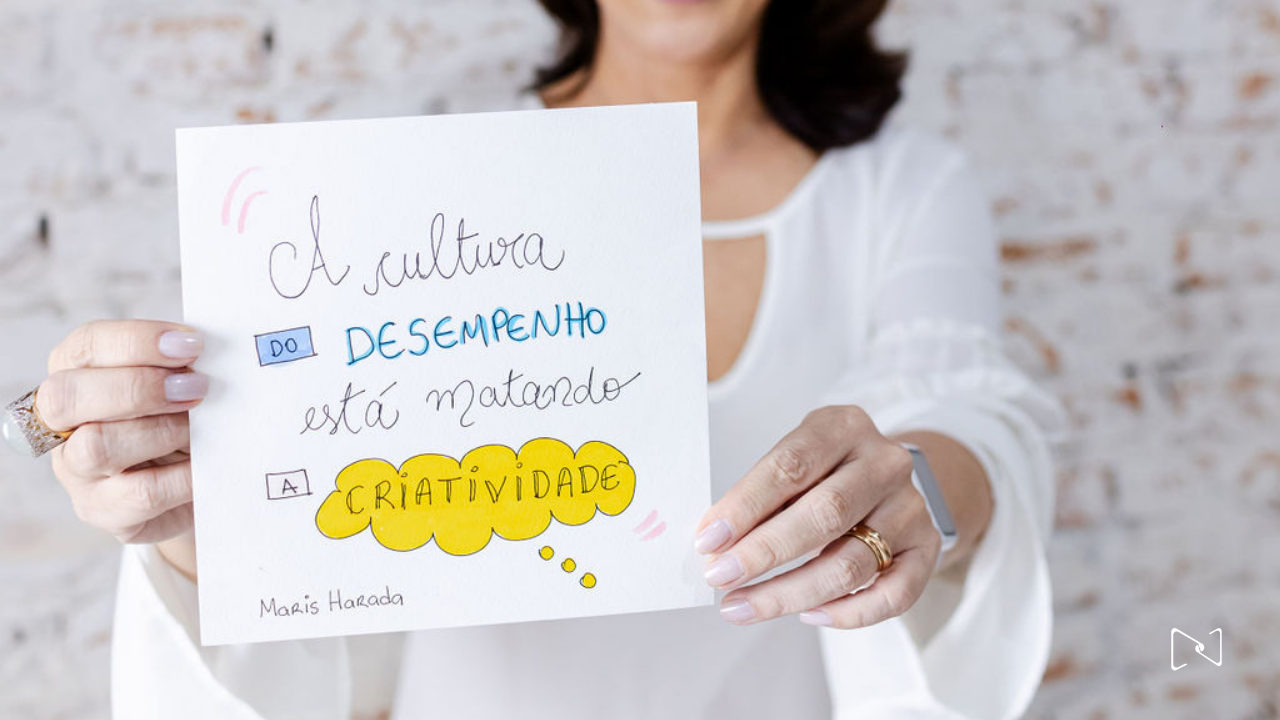 A cultura
DO DESEMPENHO
está matando
A CRIATIVIDADE
Maris Harada